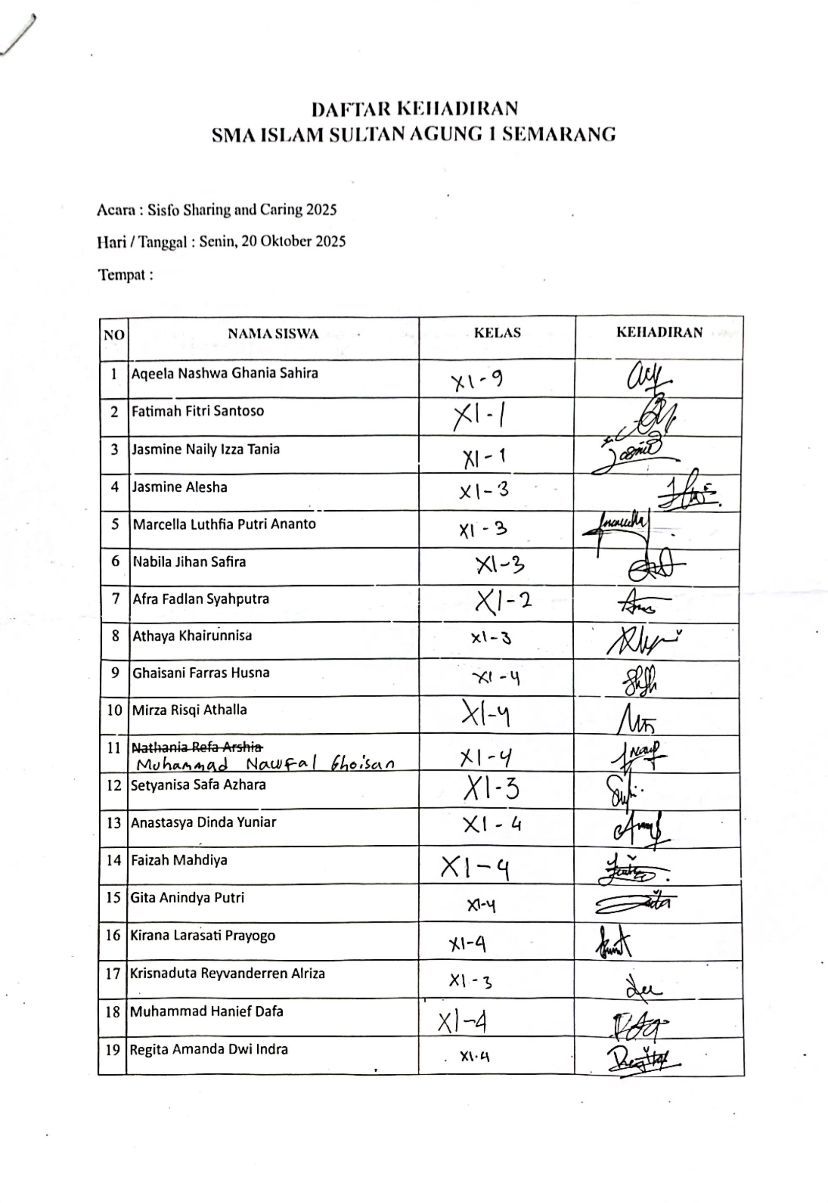 DAFTAR KEHADIRAN
SMA ISLAM SULTAN AGUNG 1 SEMARANG
Acara : Sisfo Sharing and Caring 2025
Hari / Tanggal : Senin, 20 Oktober 2025
Tempat :
NO NAMA SISWA KELAS KEHADIRAN
1 Aqeela Nashwa Ghania Sahira XI-9
2 Fatimah Fitri Santoso XI-1
3 Jasmine Naily Izza Tania XI-1 Jasmie
4 Jasmine Alesha XI-3
5 Marcella Luthfia Putri Ananto XI-3 marcella
6 Nabila Jihan Safira XI-3
7 Afra Fadlan Syahputra XI-2
8 Athaya Khairunnisa XI-3
9 Ghaisani Farras Husna XI-4
10 Mirza Risqi Athalla XI-4
11 Nathania Refa Arshia
Muhammad Nawfal Ghoisan XI-4
12 Setyanisa Safa Azhara XI-3
13 Anastasya Dinda Yuniar XI-4
14 Faizah Mahdiya XI-4
15 Gita Anindya Putri XI-4
16 Kirana Larasati Prayogo XI-4
17 Krisnaduta Reyvanderren Alriza XI-3
18 Muhammad Hanief Dafa XI-4
19 Regita Amanda Dwi Indra XI-4 Regita